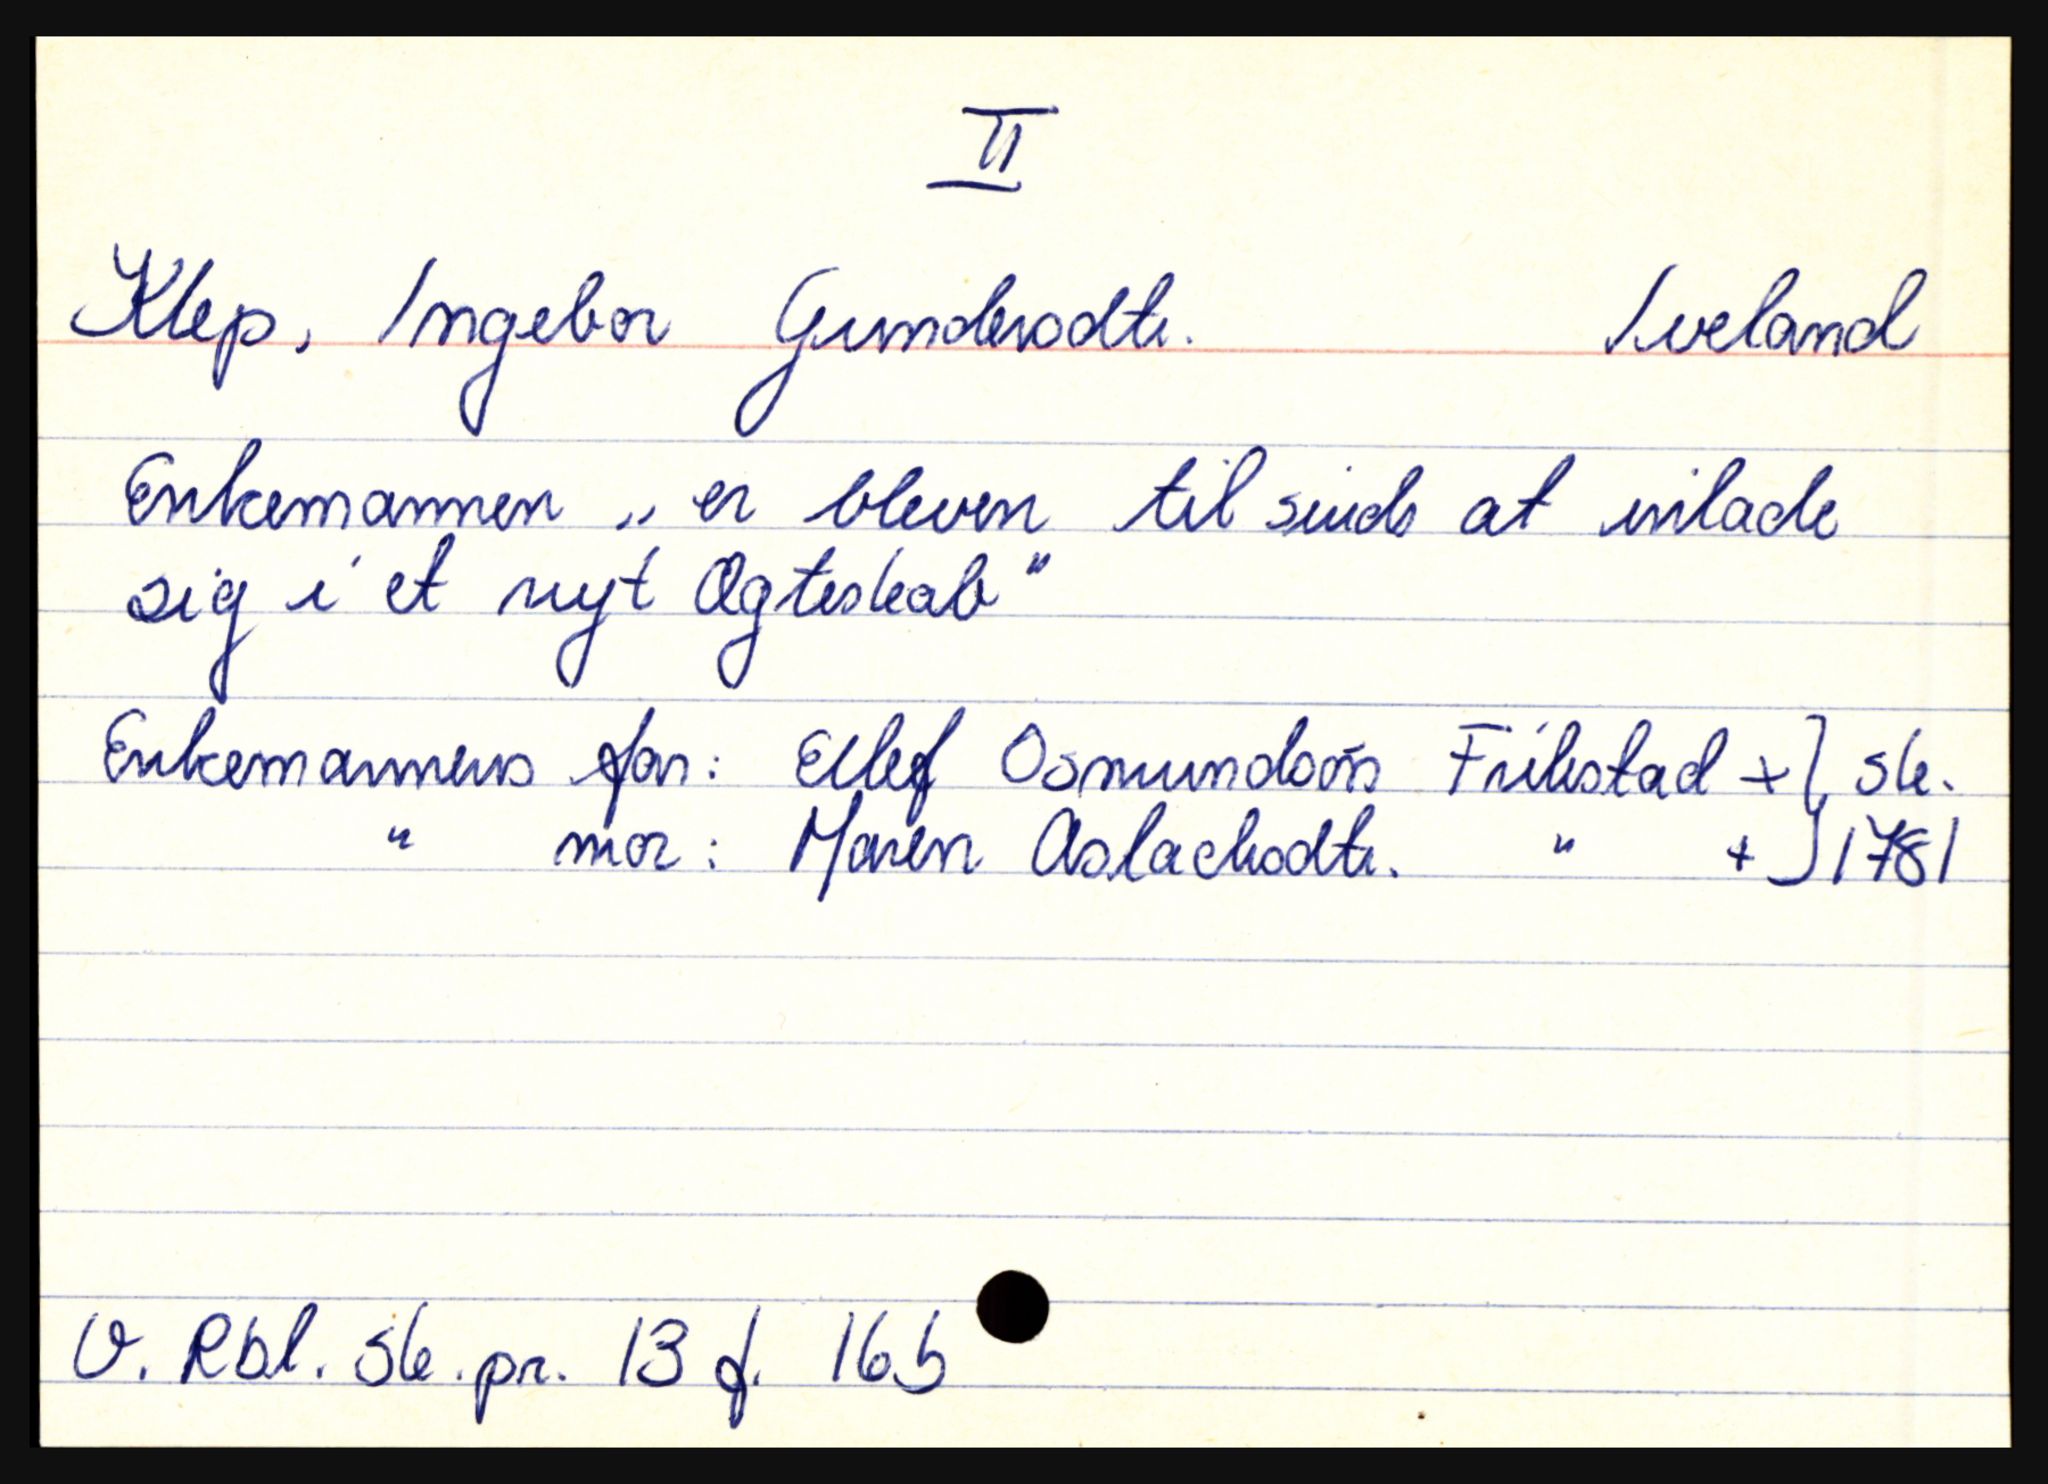 II
Klep, Ingebor Gundersdtr. Iveland
Enkemannen „ er bleven til sinds at inlade
sig i et nyt Ægteskab"
Enkemannens far: Ellef Osmundsøn Frikstad + } sk.
" mor: Maren Aslachsdtr. " + } 1781
V. Rbl. sk. pr. 13 f. 16b